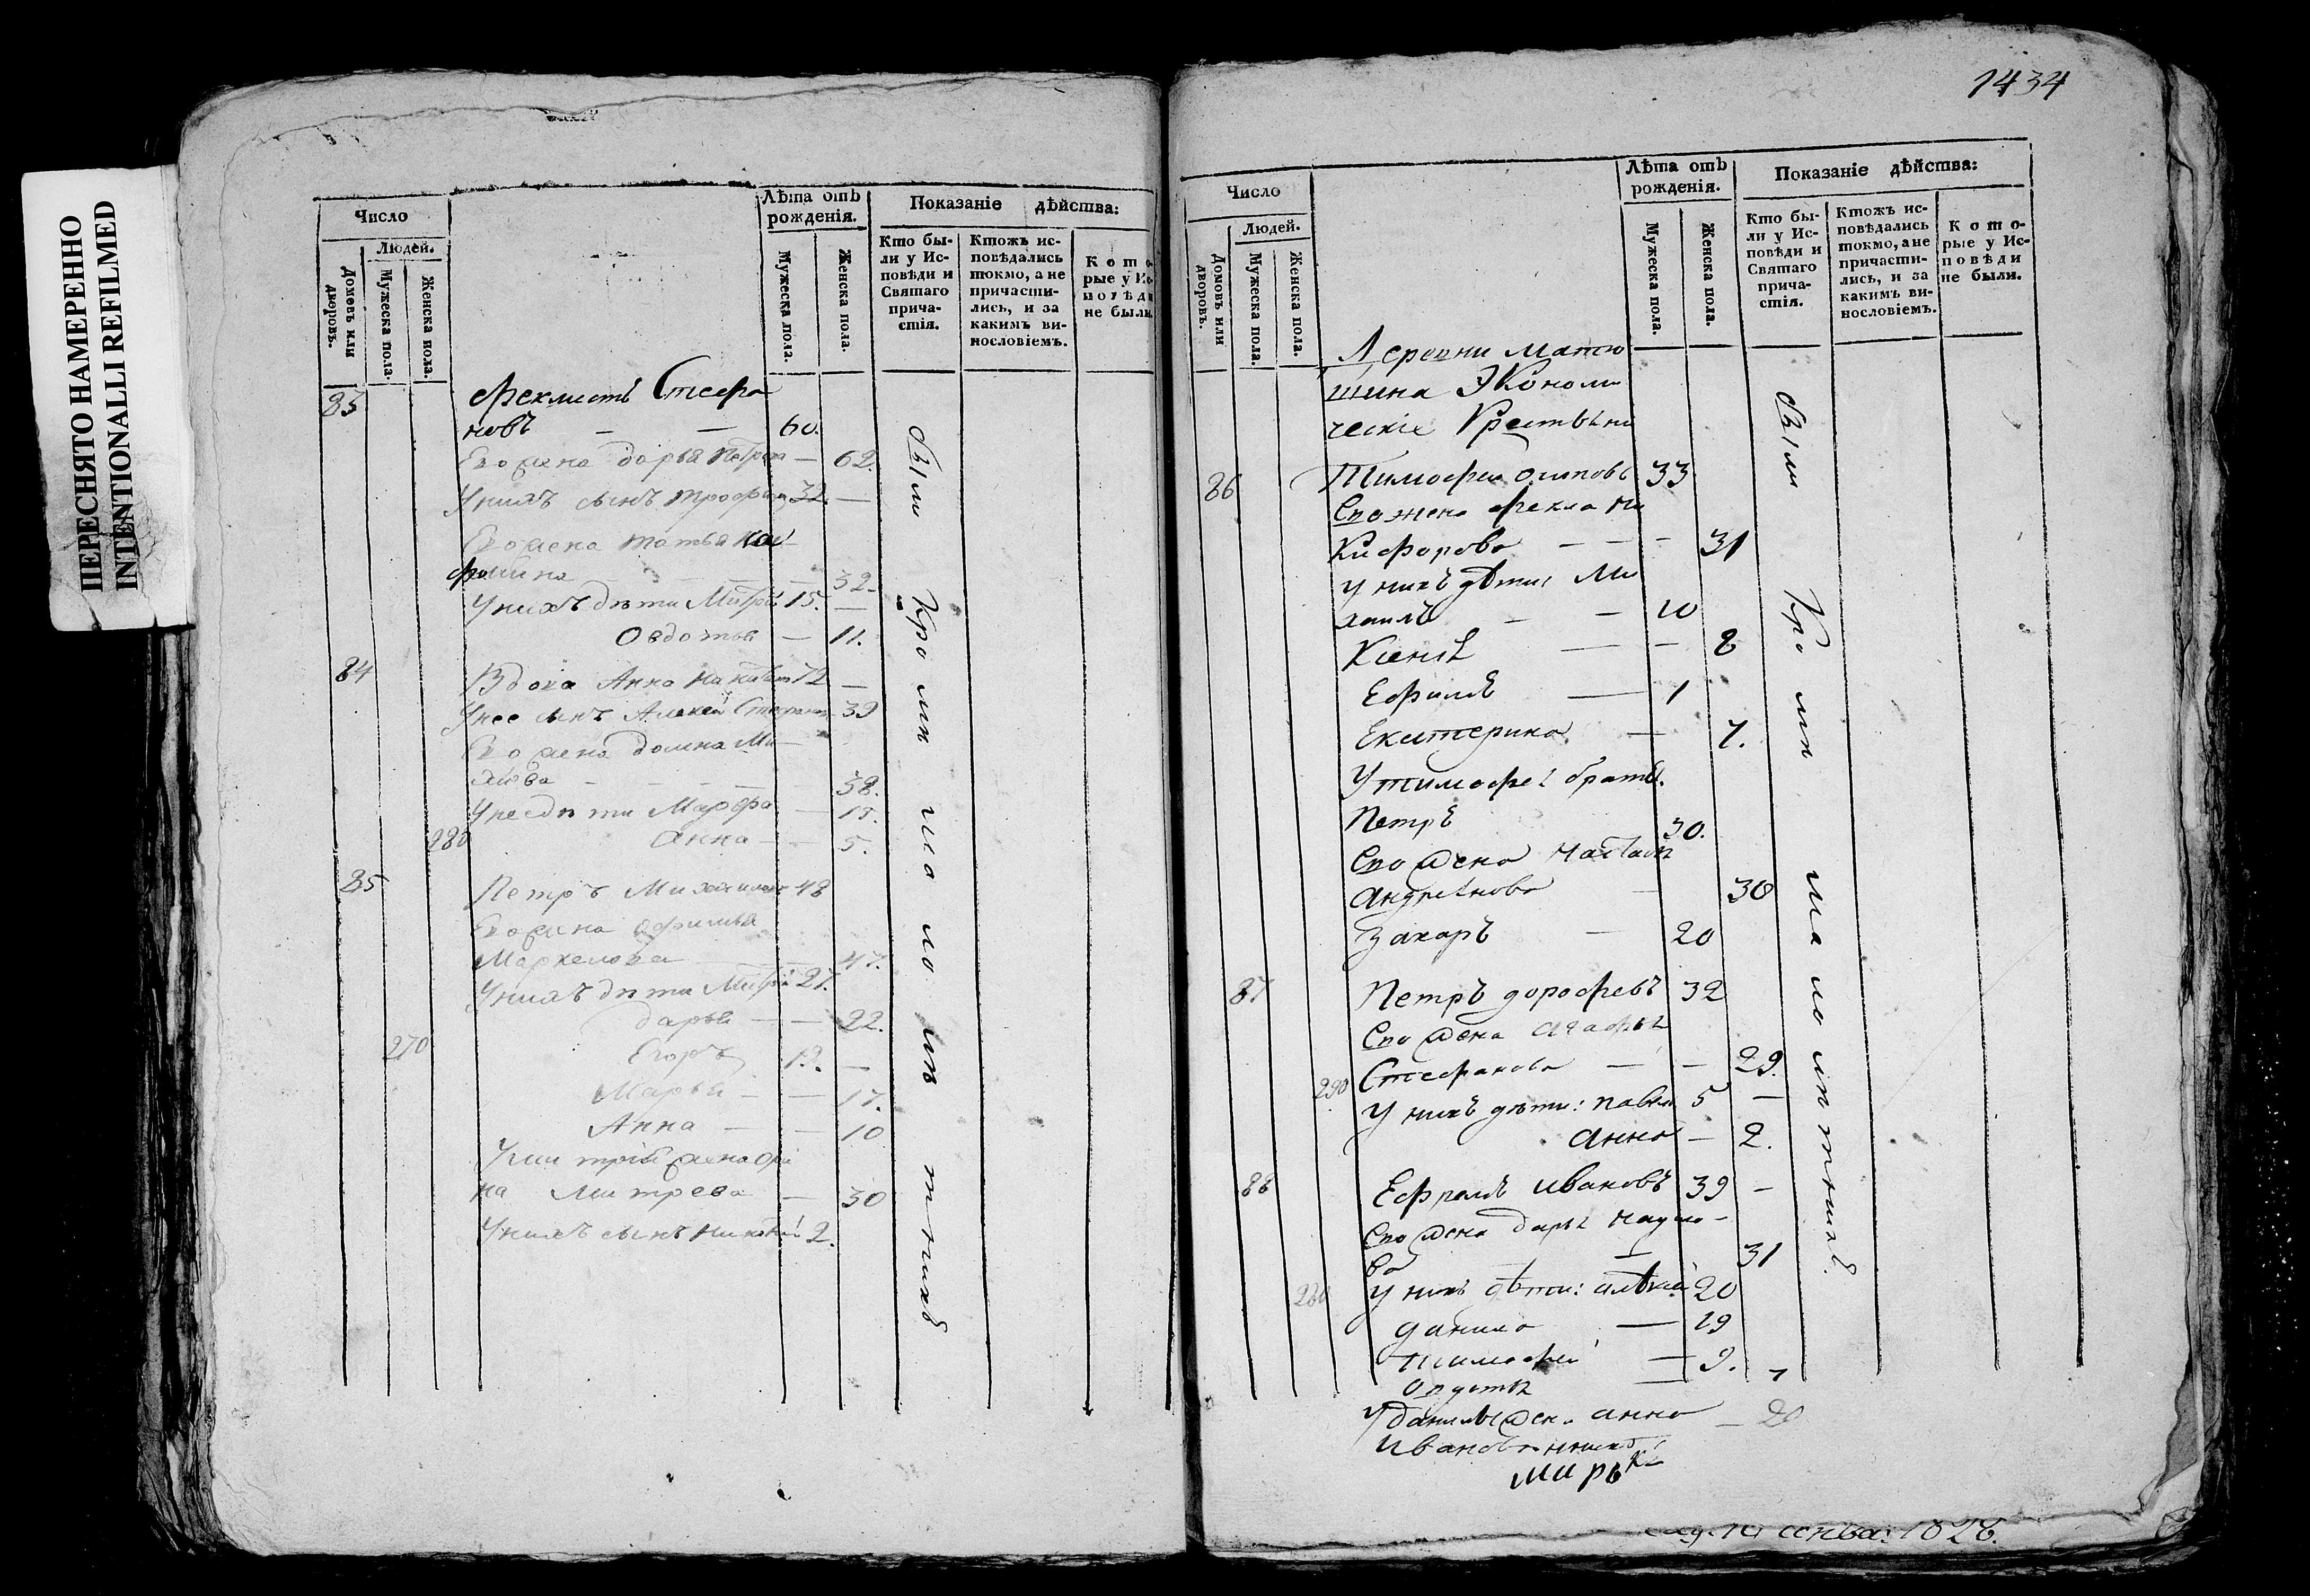 ПЕРЕСНЯТО НАМЕРЕННО
INTENTIONALLI REFILMED
Число
Людей.
Домовъ или дворовъ.
Мужеска пола.
Женска пола.
Лѣта отъ рожденія.
Мужеска пола.
Женска пола.
Показаніе дѣйства:
Кто бы-
ли у Ис-
повѣди и
Святаго
прича-
стія.
Ктожъ ис-
повѣдались
токмо, а не
причасти-
лись, и за
какимъ ви-
нословіемъ.
Кото
рые у Ис
повѣди
не были
83
Феклистъ Стефа
новъ — — 60.
Его жена Дарья Петрова — 62.
У нихъ сынъ Трофимъ 32. —
Его жена Татьяна
32.
У нихъ дѣти Митрій 15. —
Овдотья — 11.
84
Вдова Анна 72 —
У нее сынъ Алексей Стефановъ 39
Его жена Домна Ми-
38.
У нее дѣти Марфа — 15.
280
Анна — — 5.
85
Петръ Михайловъ 48
Его жена Офимья
Маркелова — 47.
У нихъ дѣти Митрій 27.
Дарья — — 22.
270
Егоръ 12. —
Марья — — 17.
Анна — — 10
У Митрія жена Ори
на Митрева — 30
У нихъ сынъ 2.
были Кроме малолетнихъ
1434
Число
Людей.
Домовъ или дворовъ.
Мужеска пола.
Женска пола.
Лѣта отъ
рожденія.
Мужеска пола.
Женска пола.
Показаніе дѣйства:
Кто бы-
ли у Ис-
повѣди и
Святаго
прича-
стія.
Ктожъ ис-
повѣдались
токмо, а не
причасти-
лись, и за
какимъ ви-
нословіемъ.
Кото-
рые у Ис-
повѣди
не были.
Деревни Матю
шина Экономи
ческіе Крестьяни
86
Тимофей Осиповъ 33
Его жена Фекла Ни
кифорова — — — 31
У нихъ дѣти: Ми
хаилъ — — 10
Ксенія — — 8
Ефимъ — 1
Екатерина — 7.
У Тимофея братья.
Петръ 30.
Его жена Настасья
Андреянова — 30
Захаръ — 20
87
Петръ Дорофеевъ 32
Его жена Агафья
Стефанова — — 29.
290
У нихъ дѣти: Павелъ 5 —
Анна — 2.
88
Ефремъ Ивановъ 39 —
Его жена Дарья Наумо-
ва — 31
280
У нихъ дѣти: Алексей 20
Данило — 19
Тимофей — 9.
7
У Данилы жена Анна — 20
Иванова
были Кроме малолетнихъ.
1826.